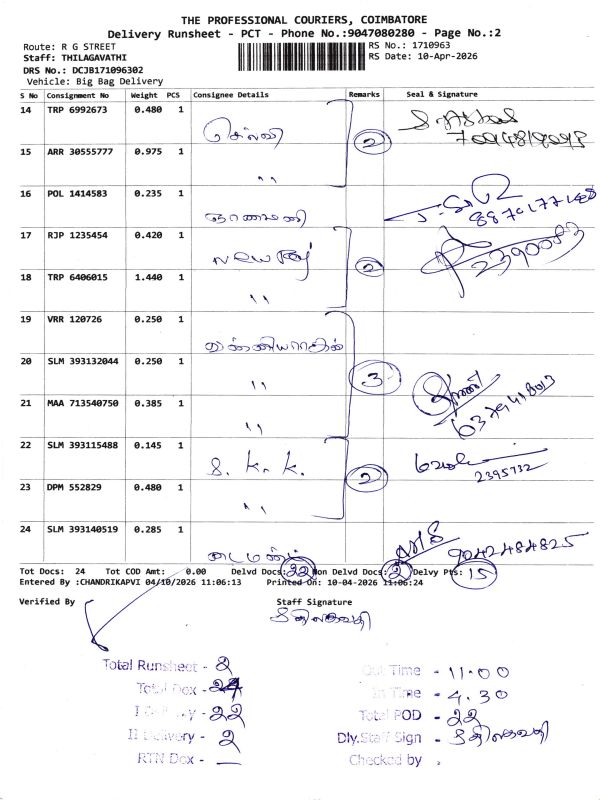 THE PROFESSIONAL COURIERS, COIMBATORE
Delivery Runsheet - PCT - Phone No.:9047080280 - Page No.:2
Route: R G STREET
RS No.: 1710963
Staff: THILAGAVATHI
RS Date: 10-Apr-2026
DRS No.: DCJB171096302
Vehicle: Big Bag Delivery
S No Consignment No Weight PCS Consignee Details Remarks Seal & Signature
14 TRP 6992673 0.480 1 செல்வி
15 ARR 30555777 0.975 1 " 2
16 POL 1414583 0.235 1 ஞானமணி
17 RJP 1235454 0.420 1 New 2390083
18 TRP 6406015 1.440 1 " 2
19 VRR 120726 0.250 1
20 SLM 393132044 0.250 1 " 3
21 MAA 713540750 0.385 1 "
22 SLM 393115488 0.145 1 S. K. K. 2395732
23 DPM 552829 0.480 1 " 2
24 SLM 393140519 0.285 1 டைமண்ட் 9042484825
Tot Docs: 24 Tot COD Amt: 0.00 Delvd Docs: 22 Non Delvd Docs: 2 Delvy Pts: 15
Entered By :CHANDRIKAPVI 04/10/2026 11:06:13 Printed On: 10-04-2026 11:06:24
Verified By Staff Signature
Total Runsheet - 2
Out Time - 11.00
Total Dox - 24
In Time - 4.30
I Delivery - 22
Total POD - 22
II Delivery - 2
Dly.Staff Sign -
RTN Dox - —
Checked by .